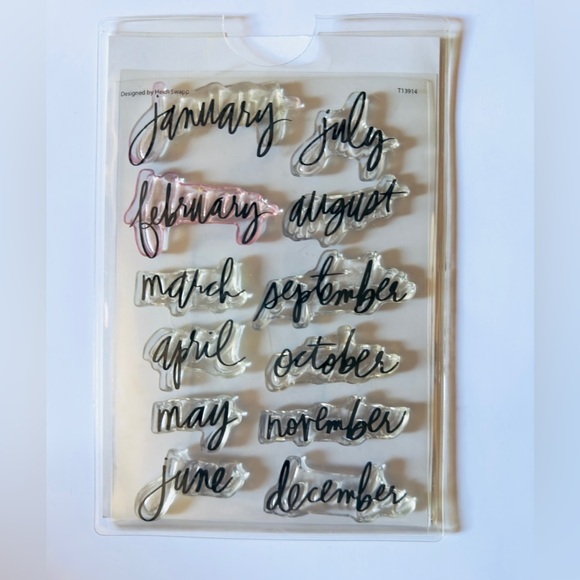 Designed by Heidi Swapp
T13914
january
february
march
april
may
june
july
august
september
october
november
december